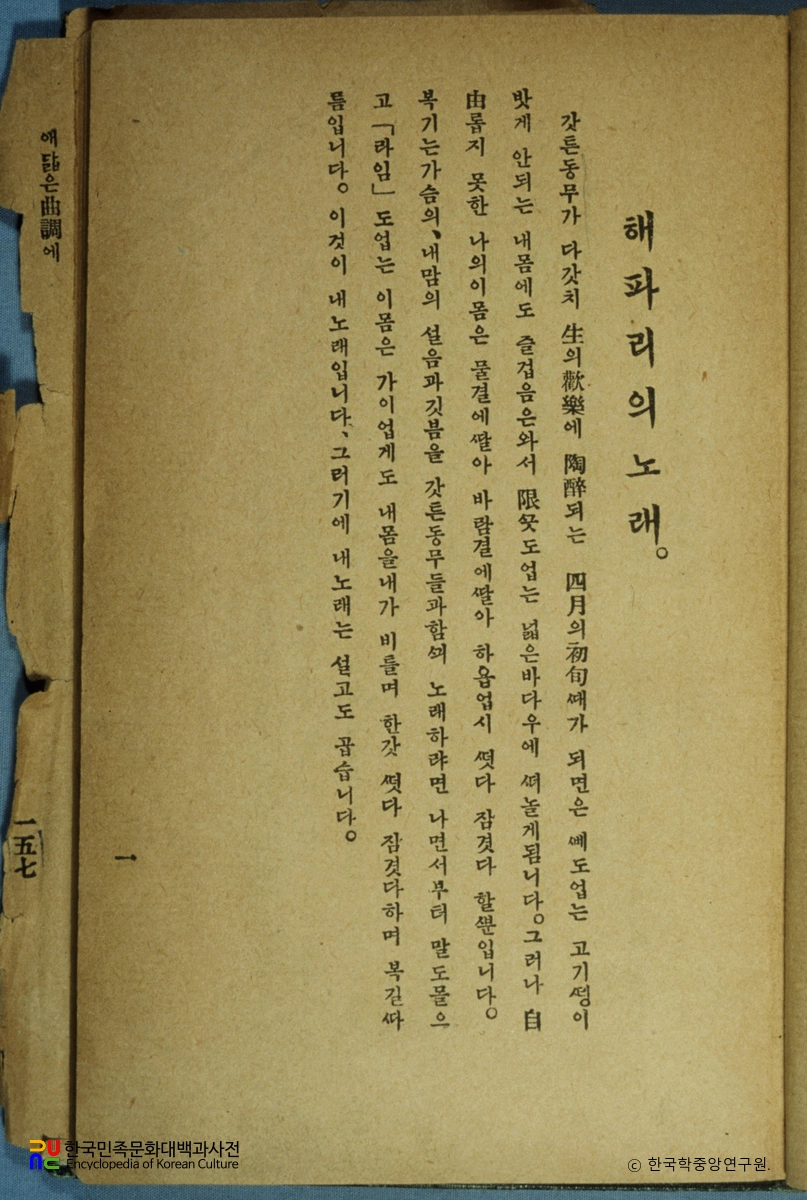 해파리의노래。
갓튼동무가 다갓치 生의歡樂에 陶醉되는 四月의初旬ᄯᅢ가 되면은 ᄲᅧ도업는 고기ᄯᅥᆼ이
밧게 안되는 내몸에도 즐겁음은와서 限ᄭᅳᆺ도업는 넓은바다우에 ᄯᅥ놀게됨니다。그러나 自
由롭지 못한 나의이몸은 물결에ᄯᅡᆯ아 바람결에ᄯᅡᆯ아 하욥업시 ᄯᅥᆺ다 잠겻다 할ᄲᅮᆫ입니다。
복기는가슴의、내맘의 설음과깃븜을 갓튼동무들과함ᄭᅴ 노래하랴면 나면서부터 말도몰으
고 「라임」도업는 이몸은 가이업게도 내몸을내가 비틀며 한갓 ᄯᅥᆺ다 잠겻다하며 복길ᄯᅡ
름입니다。 이것이 내노래입니다、그러기에 내노래는 설고도 곱습니다。
一
애닯은曲調에
一五七
한국민족문화대백과사전
Encyclopedia of Korean Culture
ⓒ 한국학중앙연구원.